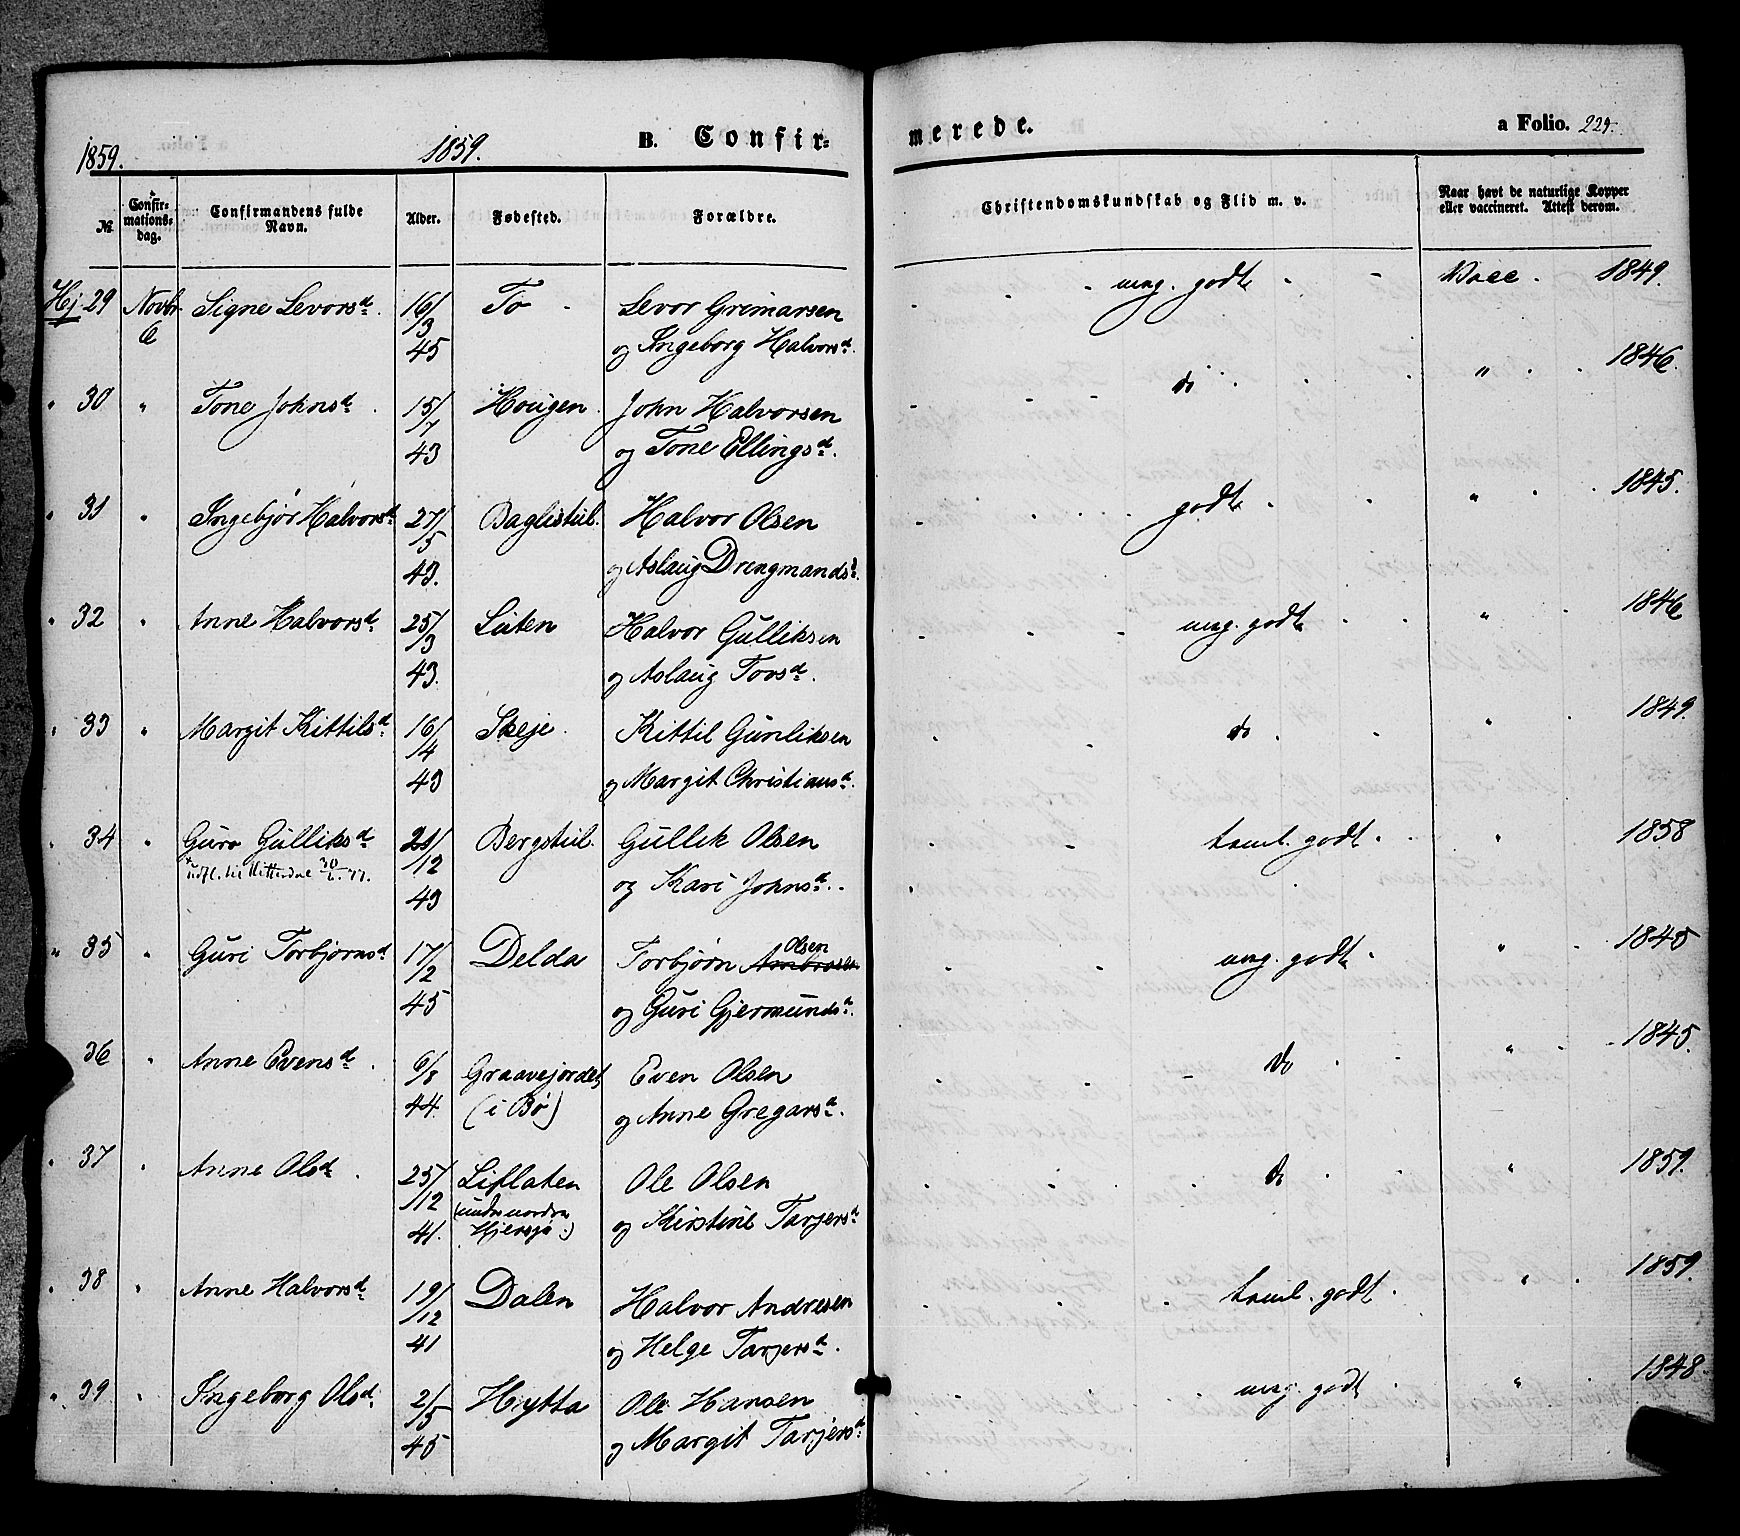 1859.
1859.
B. Confir-
merede.
a Folio. 225.
№
Confir-
mations-
dag.
Confirmandens fulde
Navn.
Alder.
Fødested.
Forældre.
Christendomskundskab og Flid m. v.
Naar havt de naturlige Kopper
eller vaccineret. Attest derom.
Hj. 29 Novbr Signe Levorsd. 16/ To Levor Greimarsen meg. godt Vacc. 1849.
6 /3 og Ingeborg Halvorsd.
45
30 " Tone Johnsd. 15/ Hougen John Halvorsen do " 1846.
/7 og Tone Ellingsd.
43
31 " Ingebjør Halvorsd. 27/ Baglistul. Halvor Olsen godt " 1845.
/5 og Aslaug Drengmandsd.
43.
32 " Anne Halvorsd. 25/ Liten Halvor Gulliksen meg. godt " 1846
/3 og Aslaug Tovsd.
43.
33 " Margit Kittilsd. 16/ Skeje Kittil Gunliksen do " 1849.
/4 og Margit Christiansd.
43
34 " Guro Gulliksd. 21/ Bergstul. Gullik Olsen taml. godt " 1858
udfl. til Hitterdal 30/ 77. /12 og Kari Johnsd.
43
35 " Guri Torbjørnsd. 17/ Delda Torbjørn Ambrosen Olsen meg. godt " 1845
/2 og Guri Gjermundsd.
45
36 " Anne Evensd. 6/8 Graavejordet Even Olsen do " 1845.
44. (i Bø) og Anne Gregarsd.
37 " Anne Olsd. 25/ Liflaten Ole Olsen do " 1859.
/12 (undre nordre og Kirstine Tarjersd.
41. Hjersjø)
38 " Anne Halvorsd. 19/ Dalen Halvor Andresen taml. godt " 1859.
/12 og Helge Tarjersd.
41
39 " Ingeborg Olsd. 2/ Hytta Ole Hansen meg. godt " 1848
/5 og Margit Tarjersd.
45